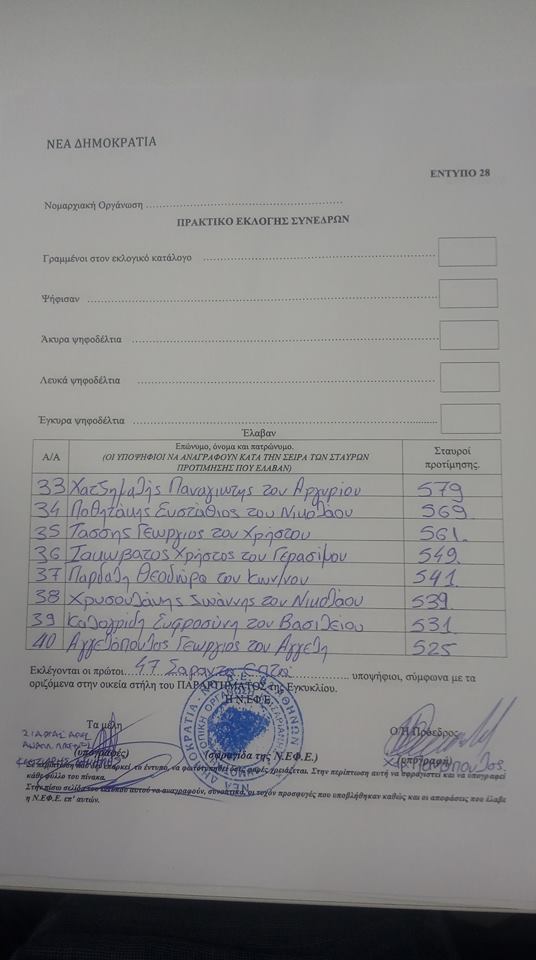 ΝΕΑ ΔΗΜΟΚΡΑΤΙΑ
ΕΝΤΥΠΟ 28
Νομαρχιακή Οργάνωση
ΠΡΑΚΤΙΚΟ ΕΚΛΟΓΗΣ ΣΥΝΕΔΡΩΝ
Γραμμένοι στον εκλογικό κατάλογο
Ψήφισαν
Άκυρα ψηφοδέλτια
Λευκά ψηφοδέλτια
Έγκυρα ψηφοδέλτια
Έλαβαν
Α/Α Επώνυμο, όνομα και πατρώνυμο. Σταυροί
(ΟΙ ΥΠΟΨΗΦΙΟΙ ΝΑ ΑΝΑΓΡΑΦΟΥΝ ΚΑΤΑ ΤΗΝ ΣΕΙΡΑ ΤΩΝ ΣΤΑΥΡΩΝ προτίμησης.
ΠΡΟΤΙΜΗΣΗΣ ΠΟΥ ΕΛΑΒΑΝ)
33 Χατζημαλής Παναγιωτης του Αργυρίου 579
34 Ποθητάκης Ευστάθιος του Νικολάου 569
35 Τασσης Γεωργιος του Χρήστου 561
36 Χρήστος του Γερασίμου 549
37 Παρδαλη Θεοδώρα του Κων/νου 541
38 Ιωάννης του Νικολάου 539
39 Καλογρίδη Ευφροσύνη του Βασιλείου 531
40 Αγγελόπουλος Γεωργιος του Αγγελη 525
Εκλέγονται οι πρώτοι 47 Σαραντα Επτα υποψήφιοι, σύμφωνα με τα
οριζόμενα στην οικεία στήλη του ΠΑΡΑΡΤΗΜΑΤΟΣ της Εγκυκλίου.
Η Ν.ΕΦ.Ε.
Τα μέλη Ο/Η Πρόεδρος
(υπογραφές) (σφραγίδα της Ν.ΕΦ.Ε.) (υπογραφή)
Σε περίπτωση που δεν επαρκεί το έντυπο, να φωτοτυπηθεί όσες φορές χρειάζεται. Στην περίπτωση αυτή να σφραγιστεί και να υπογραφεί
κάθε φύλλο του πίνακα.
Στην πίσω σελίδα του εντύπου αυτού να αναγραφούν, συνοπτικά, οι τυχόν προσφυγές που υποβλήθηκαν καθώς και οι αποφάσεις που έλαβε
η Ν.ΕΦ.Ε. επ' αυτών.